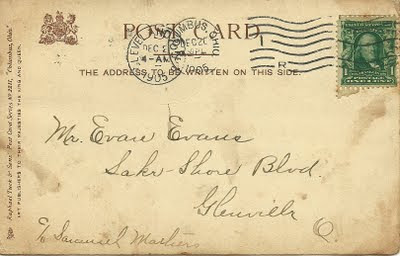 POST CARD.
CLEVELAND, OHIO
DEC 2
4-AM
1905
COLUMBUS, OHIO
DEC 2
1905
R
THE ADDRESS TO BE WRITTEN ON THIS SIDE.
Raphael Tuck & Sons' Post Card Series No 2211, "Columbus, Ohio."
ART PUBLISHERS TO THEIR MAJESTIES THE KING AND QUEEN.
Mr. Evan Evans
Lake-Shore Blvd.
Glenville O.
c/o Samuel Mathers